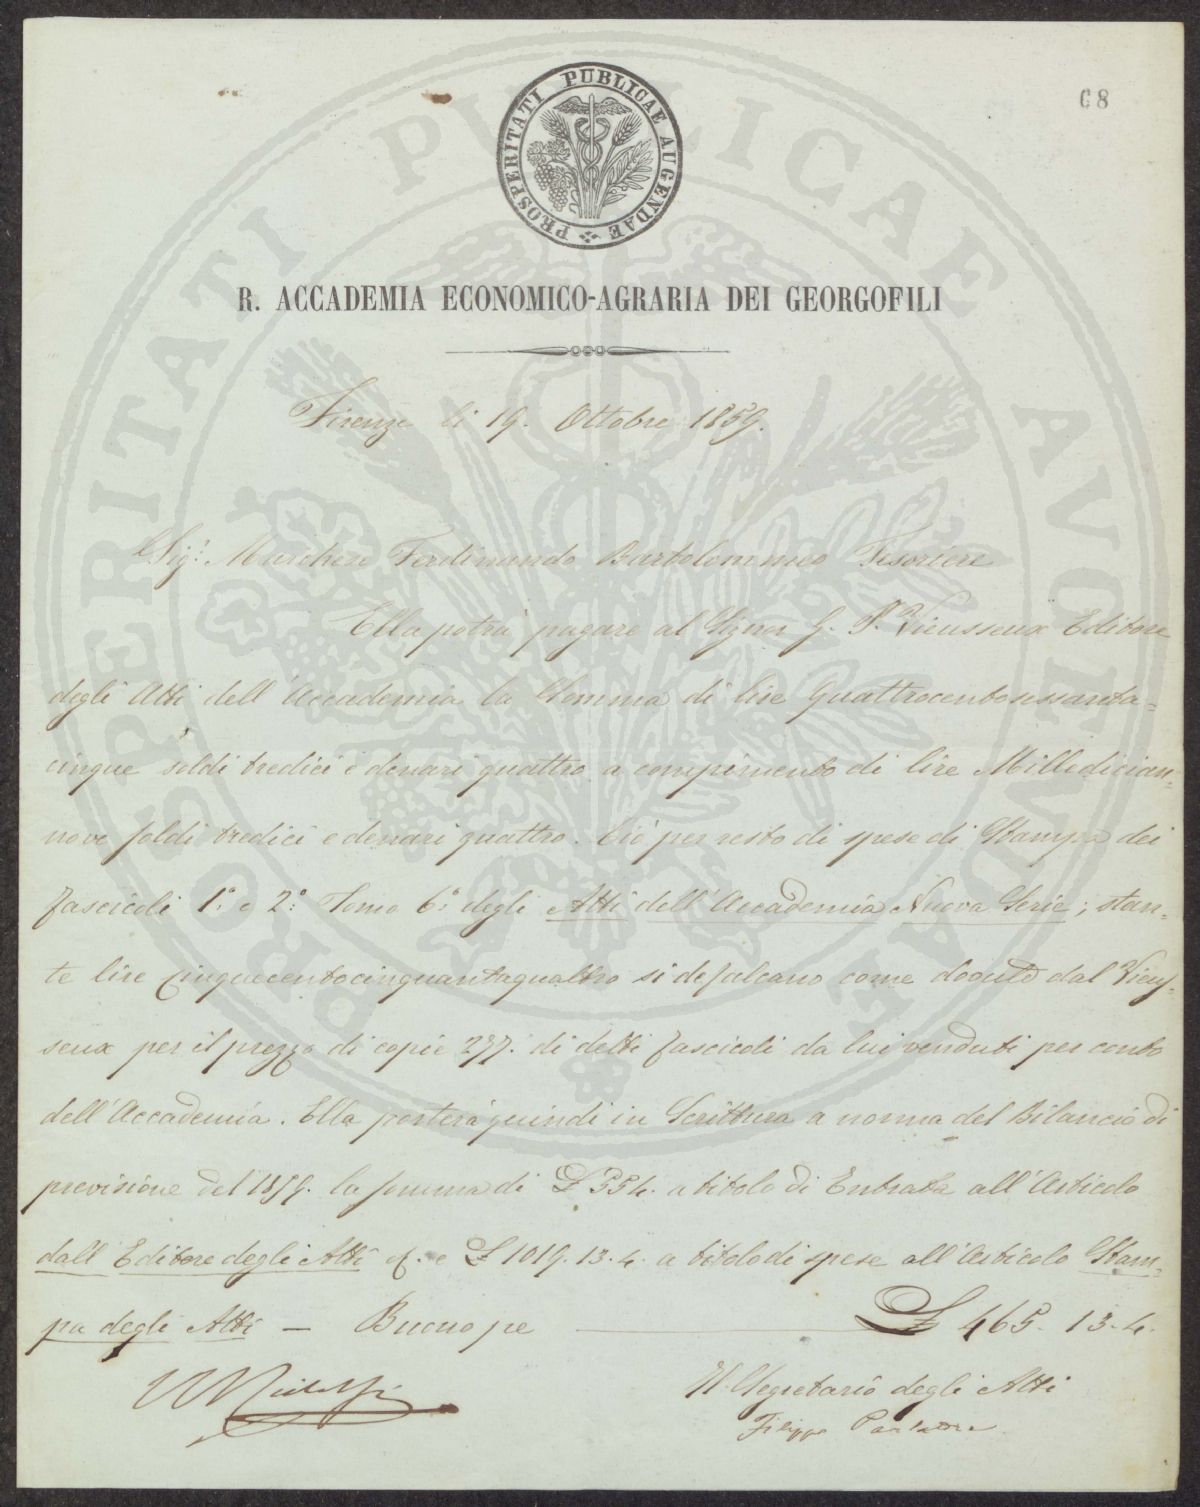 PROSPERITATI PUBLICAE AUGENDAE
68
R. ACCADEMIA ECONOMICO-AGRARIA DEI GEORGOFILI
Firenze li 19. Ottobre 1859.
Sig.r Marchese Ferdinando Bartolommeo Tesoriere
Ella potrà pagare al Signor G. P. Vieusseux Editore
degli Atti dell'Accademia la Somma di lire Quattrocentosessanta=
cinque soldi tredici e denari quattro a compimento di lire Milledician=
nove soldi tredici e denari quattro. Ciò per resto di spese di Stampa dei
fascicoli 1.° e 2.° Tomo 6.° degli Atti dell'Accademia Nuova Serie; stan=
te lire Cinquecentocinquantaquattro si defalcano come dovute dal Vieus=
seux per il prezzo di copie 277. di detti fascicoli da lui venduti per conto
dell'Accademia. Ella porterà quindi in Scrittura a norma del Bilancio di
previsione del 1859. la somma di £ 554. a titolo di Entrata all'Articolo
dall'Editore degli Atti e £ 1019. 13. 4. a titolo di spese all'Articolo Stam=
pa degli Atti — Buono pe £ 465. 13. 4.
Il Segretario degli Atti
Filippo